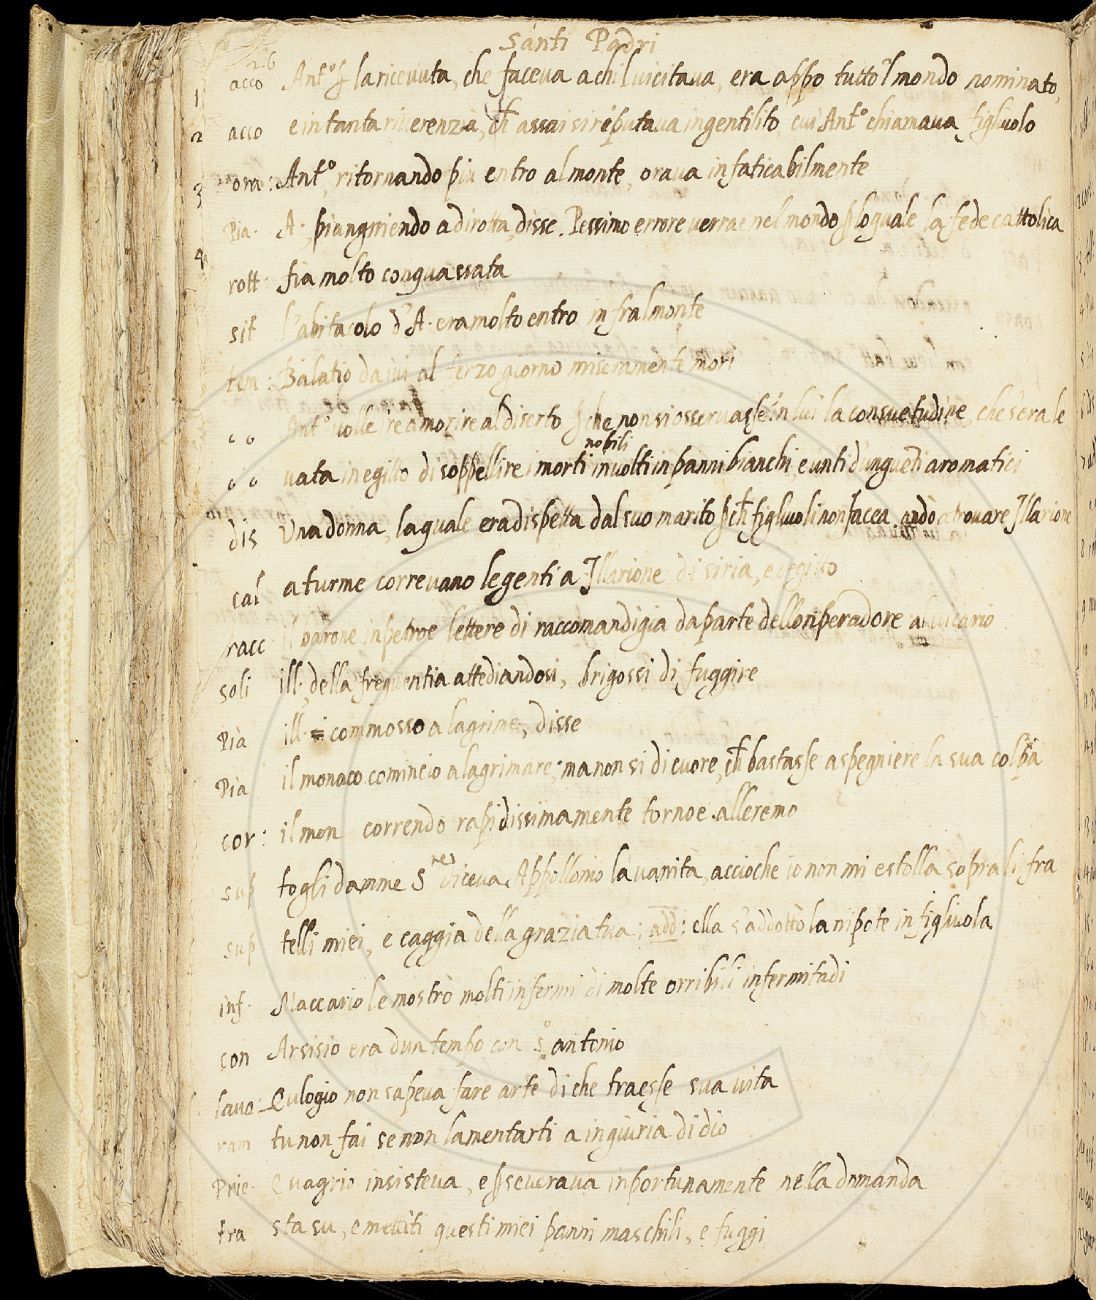 Santi Padri
26
1 acco Ant.° ꝑ la ricevuta, che faceva a chi l vicitava, era appo tutto 'l mondo nominato,
2 acco e in tanta riverenzia, ch̄ assai si reputava ingentilito cui Ant.° chiamava figluolo
3 ora: Ant.°, ritornando piu entro al monte, orava infaticabilmente
Pia. A. piangniendo a dirotta, disse. Pessimo errore verrae nel mondo ꝑ lo quale la fede cattolica
4 rott: fia molto conguassata
sit l'abitacolo d'A. era molto entro infral monte
tem: Balatio da ivi al terzo giorno miseramente mori
Ant.° volle re a morire al diserto ꝑche non si osservasse in lui la consuetudine, che s'era le
nobili
vata in egitto di soppellire i morti involti in panni bianchi, e unti d'unguēti aromatici
dis Una donna, la quale era dispetta dal suo marito ꝑch̄ figluoli non facea, andò a trovare Jllarione
cal a turme correvano le genti a Jllarione di siria, e d'egitto
racc barone inpetroe lettere di raccomandigia da parte dello 'nperadore al vicario
soli ill: della frequentia attediandosi, brigossi di fuggire
Pia ill. commosso a lagrime, disse
Pia il monaco comincio a lagrimare; ma non si di cuore, ch̄ bastasse a spegniere la sua colpa
cor: il mon correndo rapidissimamente tornoe all'eremo
sup togli da mme S.ne diceva Appollonio la vanità, accioche io non mi estolla sopra li fra
sup telli miei, e caggia della grazia tua; add: ella s'addottò la nipote in figliuola
inf. Maccario le mostrò molti infermi di molte orribili infermitadi
con Arsisio era d'un tempo con S.° antonio
lavo: Eulogio non sapeva fare arte di che traesse sua vita
ram tu non fai se non lamentarti a ingiuria di dio
Prie. Evagrio insisteva, e ꝑseverava inportunamente nella domanda
fra sta su, e mettiti questi miei panni maschili, e fuggi